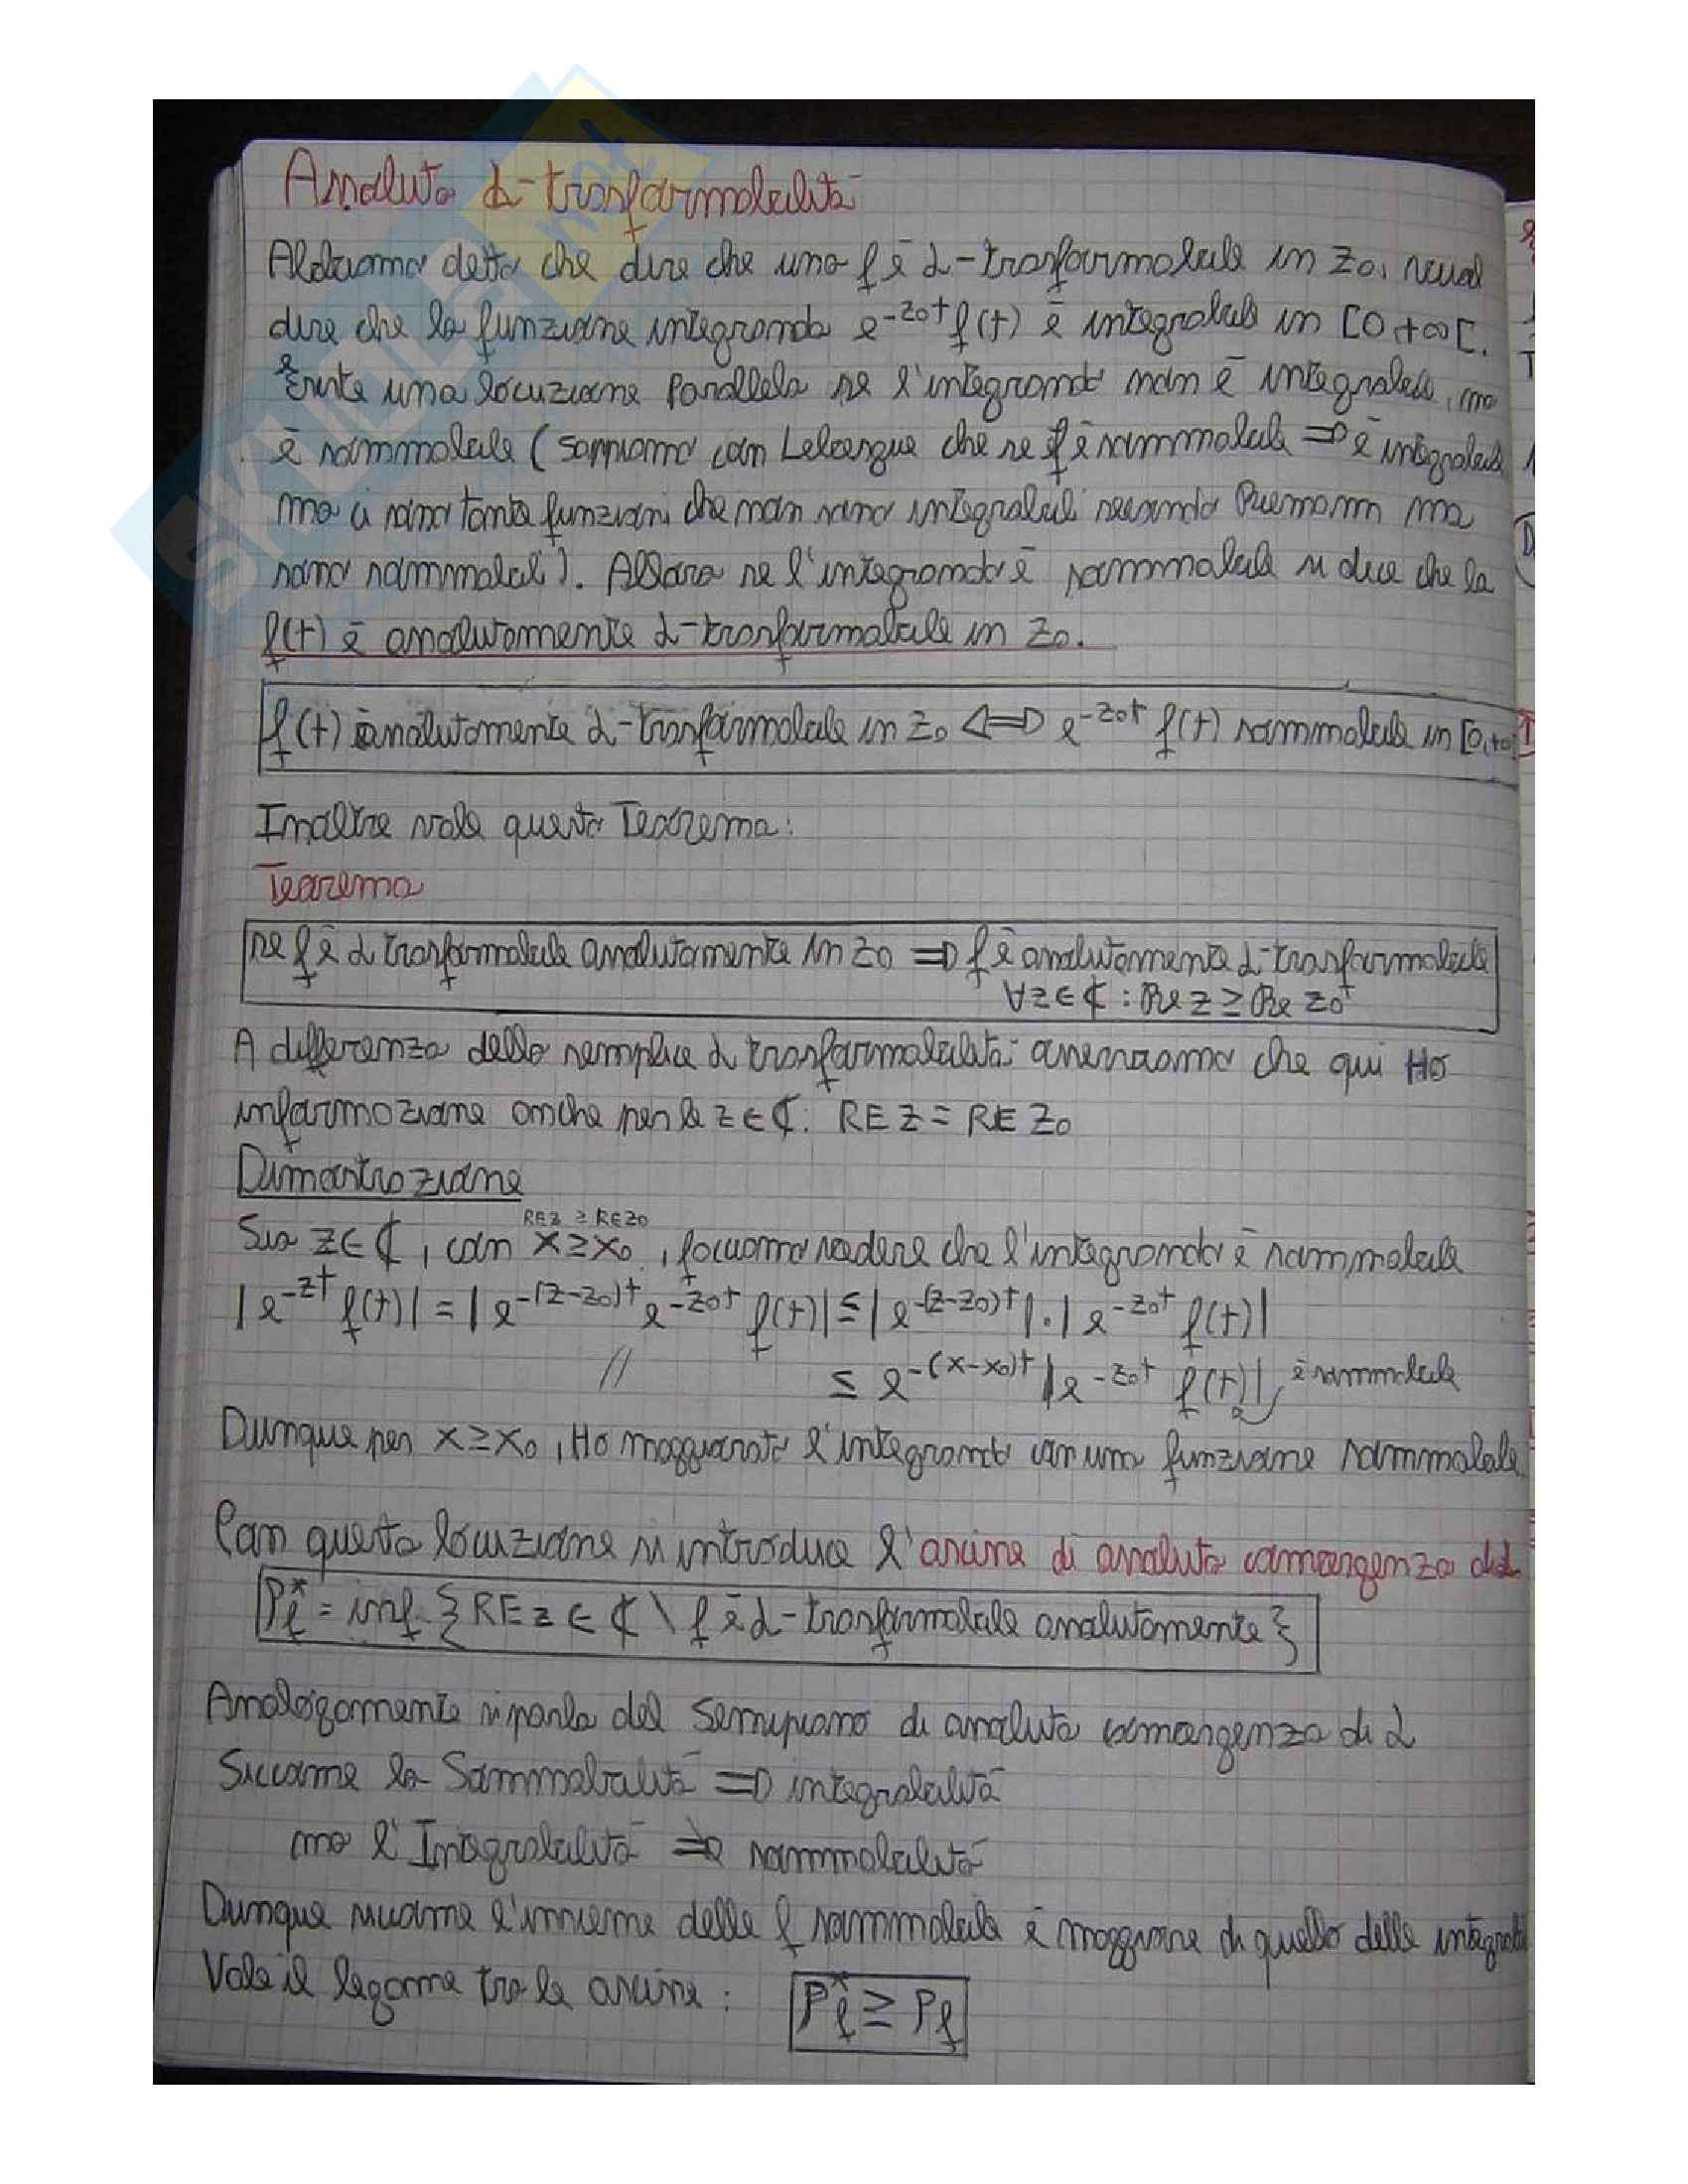 Assoluta L-trasformabilità
Abbiamo detto che dire che una f è L-trasformabile in z₀, vuol
dire che la funzione integranda e^{-z₀t} f(t) è integrabile in [0,+∞[.
Esiste una locuzione parallela se l'integrando non è integrabile, ma
è sommabile (Sappiamo con Lebesgue che se f è sommabile ⇒ è integrabile
ma ci sono tante funzioni che non sono integrabili secondo Riemann ma
sono sommabili). Allora se l'integrando è sommabile si dice che la
f(t) è assolutamente L-trasformabile in z₀.
f(t) assolutamente L-trasformabile in z₀ ⇔ e^{-z₀t} f(t) sommabile in [0,+∞[
Inoltre vale questo Teorema:
Teorema
se f è L trasformabile assolutamente in z₀ ⇒ f è assolutamente L-trasformabile
∀z∈ℂ : Re z ≥ Re z₀
A differenza della semplice L trasformabilità osserviamo che qui HO
informazione anche per le z∈ℂ: RE z = RE z₀
Dimostrazione
RE z ≥ RE z₀
Sia z∈ℂ, con x≥x₀, facciamo vedere che l'integrando è sommabile
|e^{-zt} f(t)| = |e^{-(z-z₀)t} e^{-z₀t} f(t)| ≤ |e^{-(z-z₀)t}|·|e^{-z₀t} f(t)|
// ≤ e^{-(x-x₀)t} |e^{-z₀t} f(t)| è sommabile
Dunque per x≥x₀, Ho maggiorato l'integrando con una funzione sommabile
Con questa locuzione si introduce l'ascissa di assoluta convergenza di L
ρ*_f = inf {RE z∈ℂ \ f è L-trasformabile assolutamente}
Analogamente si parla del Semipiano di assoluta convergenza di L
Siccome la Sommabilità ⇒ integrabilità
ma l'Integrabilità ⇏ sommabilità
Dunque siccome l'insieme delle f sommabile è maggiore di quello delle integrabili
Vale il legame tra le ascisse : ρ*_f ≥ ρ_f
SKUOLA.net